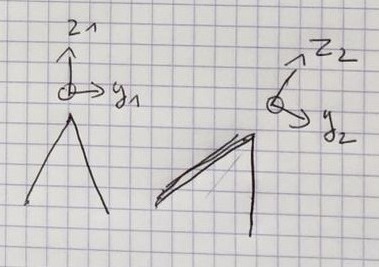 z1
y1
z2
y2